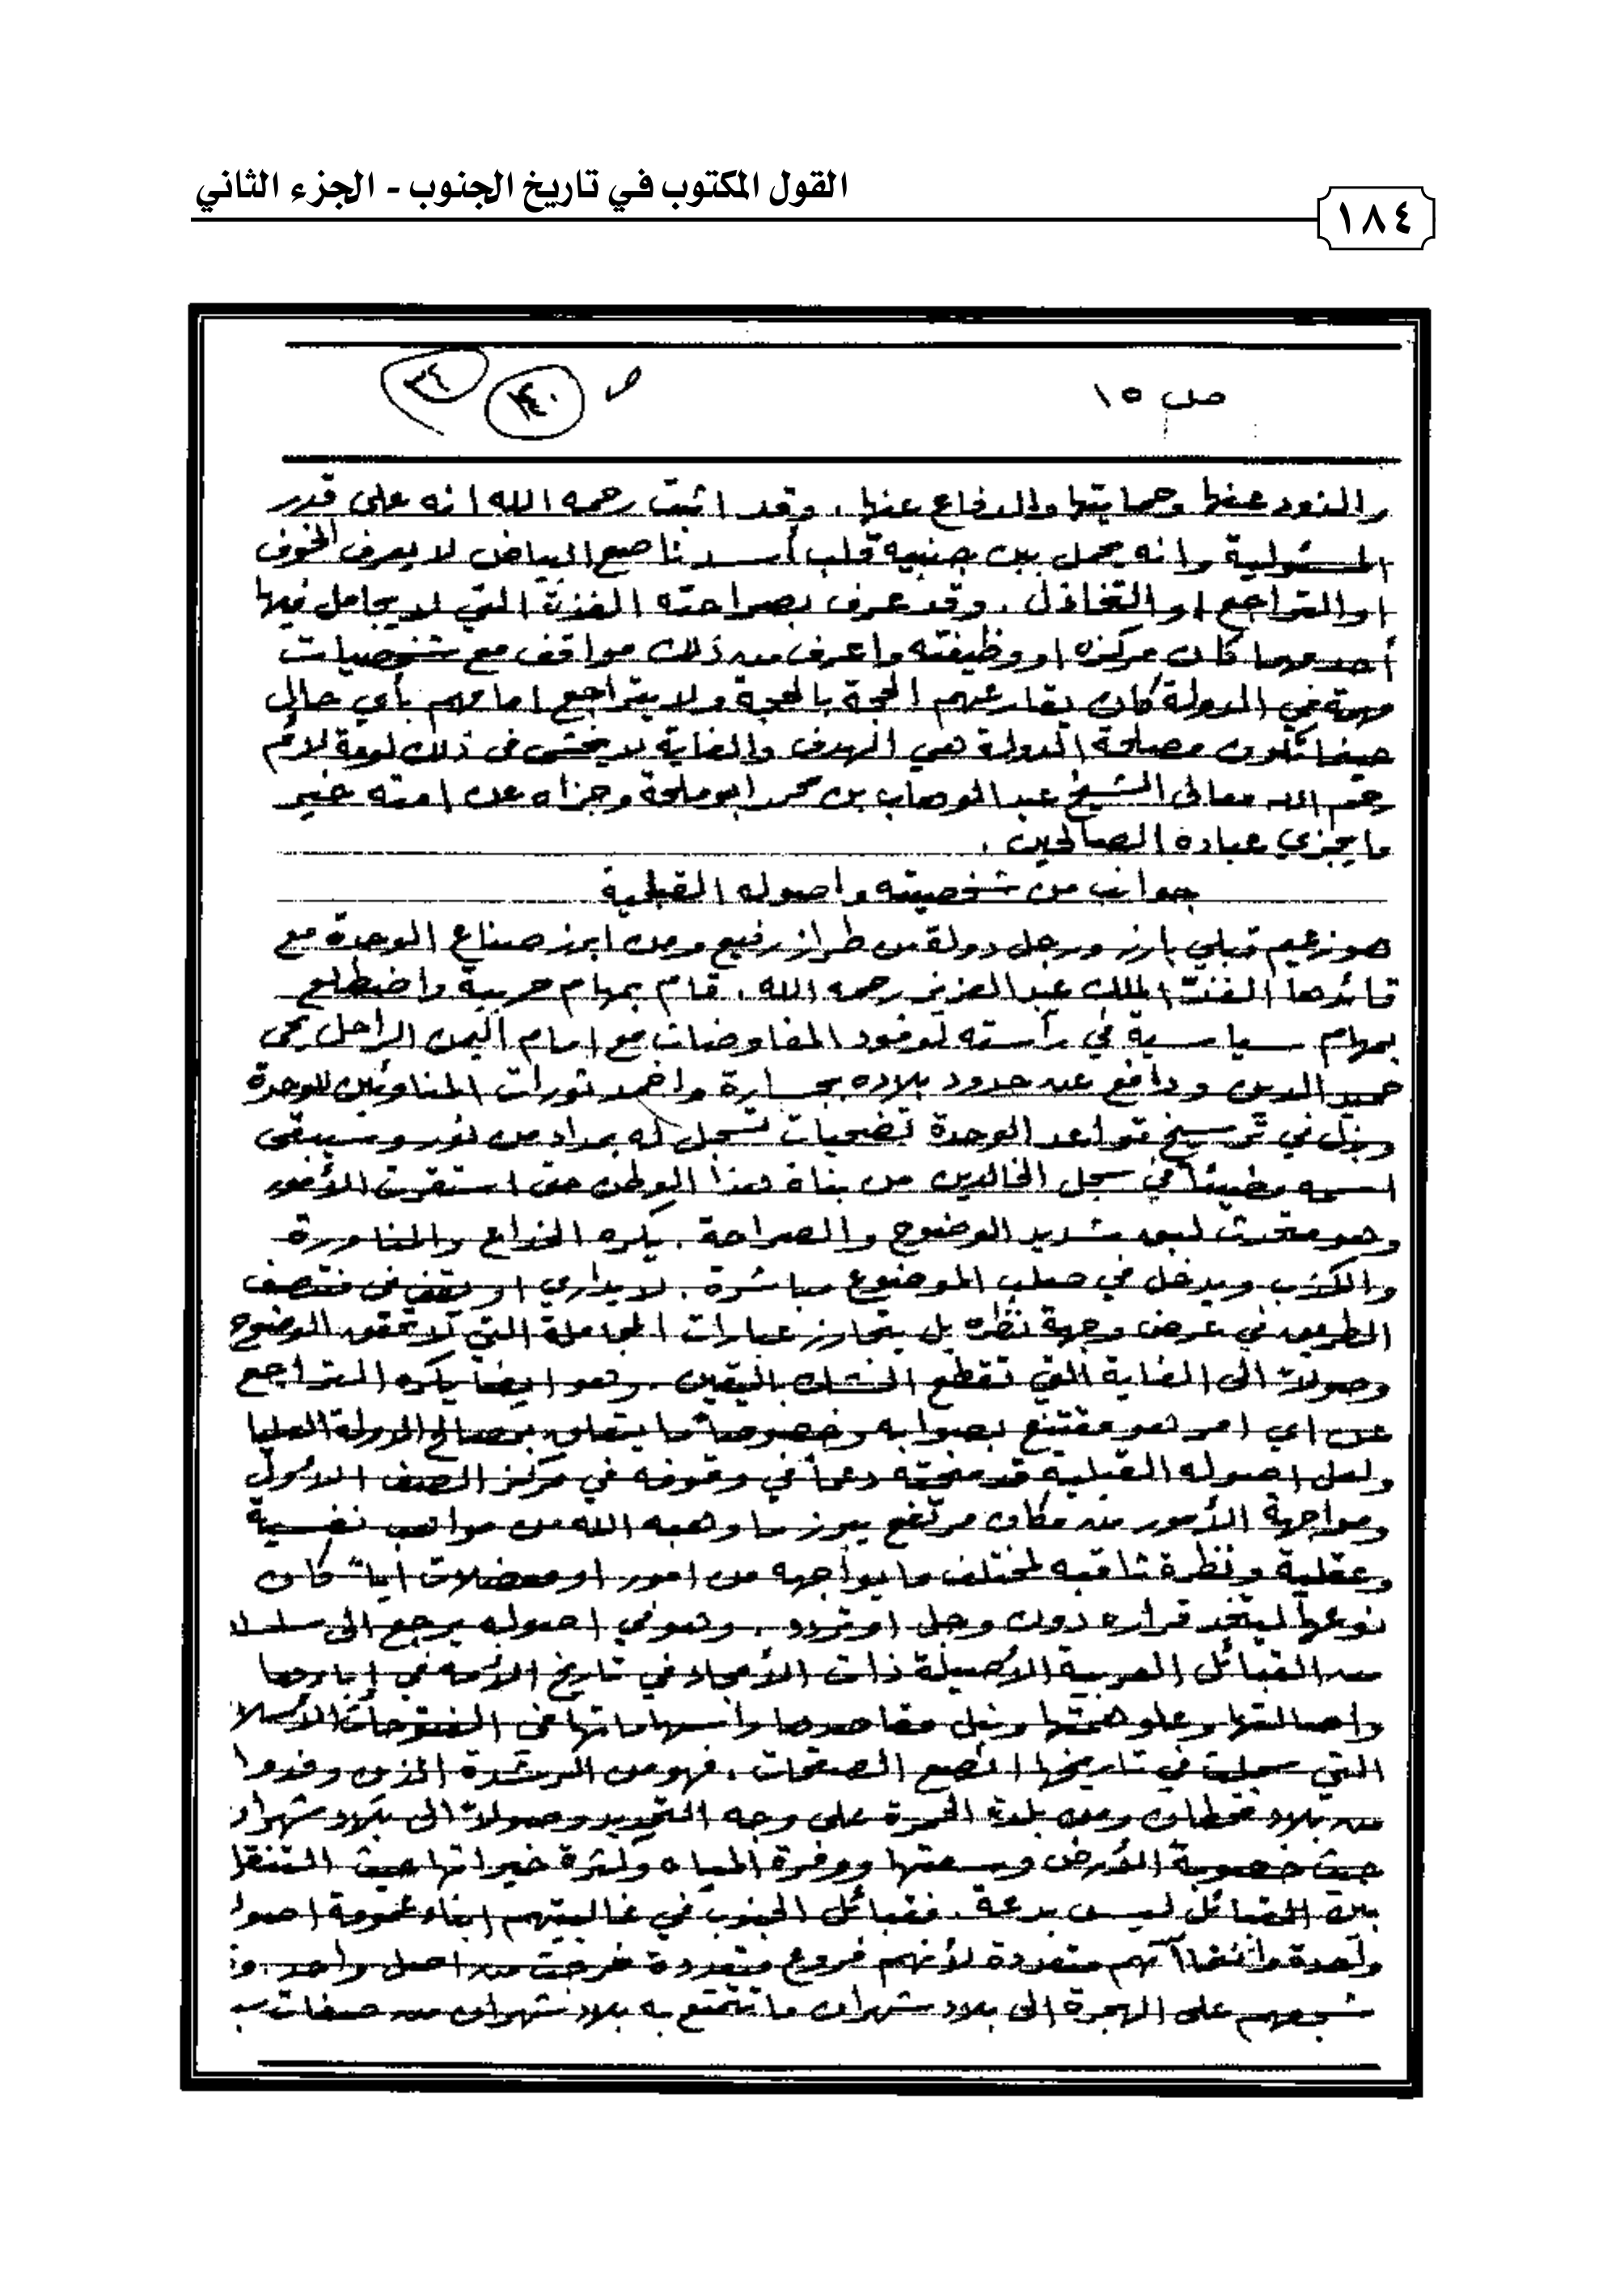 القول المكتوب في تاريخ الجنوب - الجزء الثاني
١٨٤
ص ١٥
ص ٤٠
٣٤
والذود عنها وحمايتها والدفاع عنها . وقد اثبت رحمه الله انه على قدر
المسئولية وانه يحمل بين جنبيه قلب أسد ناصع البياض لا يعرف الخوف
او التراجع او التخاذل . وقد عرف بصراحته الفذة التي لا يجامل فيها
أحد مهما كان مركزه او وظيفته واعرف منه ذلك مواقف مع شخصيات
مهمة في الدولة كان يقارعهم الحجة بالحجة ولا يتراجع امامهم بأي حال
حينما تكون مصلحة الدولة هي الهدف والغاية لا يخشى في ذلك لومة لائم
رحم الله معالي الشيخ عبدالوهاب بن محمد ابوملحة وجزاه عن امته خير
ما يجزي عباده الصالحين .
جوانب من شخصيته واصوله القبلية
هو زعيم قبلي بارز ورجل دولة من طراز رفيع ومن ابرز صناع الوحدة مع
قائدها الفذ الملك عبدالعزيز رحمه الله . قام بمهام حربية واضطلع
بمهام سياسية في رآسته لوفود المفاوضات مع امام اليمن الراحل يحى
حميد الدين ودافع عن حدود بلاده بجسارة واخمد ثورات المناوئين للوحدة
وبذل في ترسيخ قواعد الوحدة تضحيات تسجل له بمداد من نور وسيبقى
اسمه مضيئاً في سجل الخالدين من بناة هذا الوطن حتى استقرت الأمور
وهو متحدث لبق شديد الوضوح والصراحة . يكره الخداع والمناورة
والكذب ويدخل في صلب الموضوع مباشرة . لا يداري او يقف في منتصف
الطريق في عرض وجهة نظره بل يتجاوز عبارات المجاملة التي لا تحقق الوضوح
وصولاً الى الغاية التي تقطع الشك باليقين . وهو ايضاً يكره التراجع
عن اي امر هو مقتنع بصوابه وخصوصاً ما يتعلق بمصالح الدولة العليا
ولعل اصوله القبلية قد منحته دعماً في وقوفه في مركز الصف الأول
ومواجهة الأمور من مكان مرتفع يبرز ما وهبه الله من مواهب نفسية
وعقلية ونظرة ثاقبه لمختلف ما يواجهه من امور او معضلات اياً كان
نوعها ليتخذ قراره دون وجل او تردد . وهو في اصوله يرجع الى سلسلا
من القبائل العربية الأصيلة ذات الأمجاد في تاريخ الأمه في
واصالتها وعلو همتها ونبل مقاصدها واسهاماتها في الفتوحات الأسلا
التي سجلت في تاريخها انصع الصفحات . فهو من الرشدة الذين وفدوا
من بلاد قحطان ومن بلدة الحمرة على وجه التحديد وصولاً الى بلاد شهران
حيث خصوبة الأرض وسعتها ووفرة المياه وكثرة خيراتها حيث التنقل
بين القبائل ليس بدعة . فقبائل الجنوب في غالبيتهم ابناء عمومة اصوا
واحدة متعددة لأنهم فروع متعددة خرجت من اصل واحد .
شجعهم على الهجرة الى بلاد شهران ما تتمتع به بلاد شهران من صفات